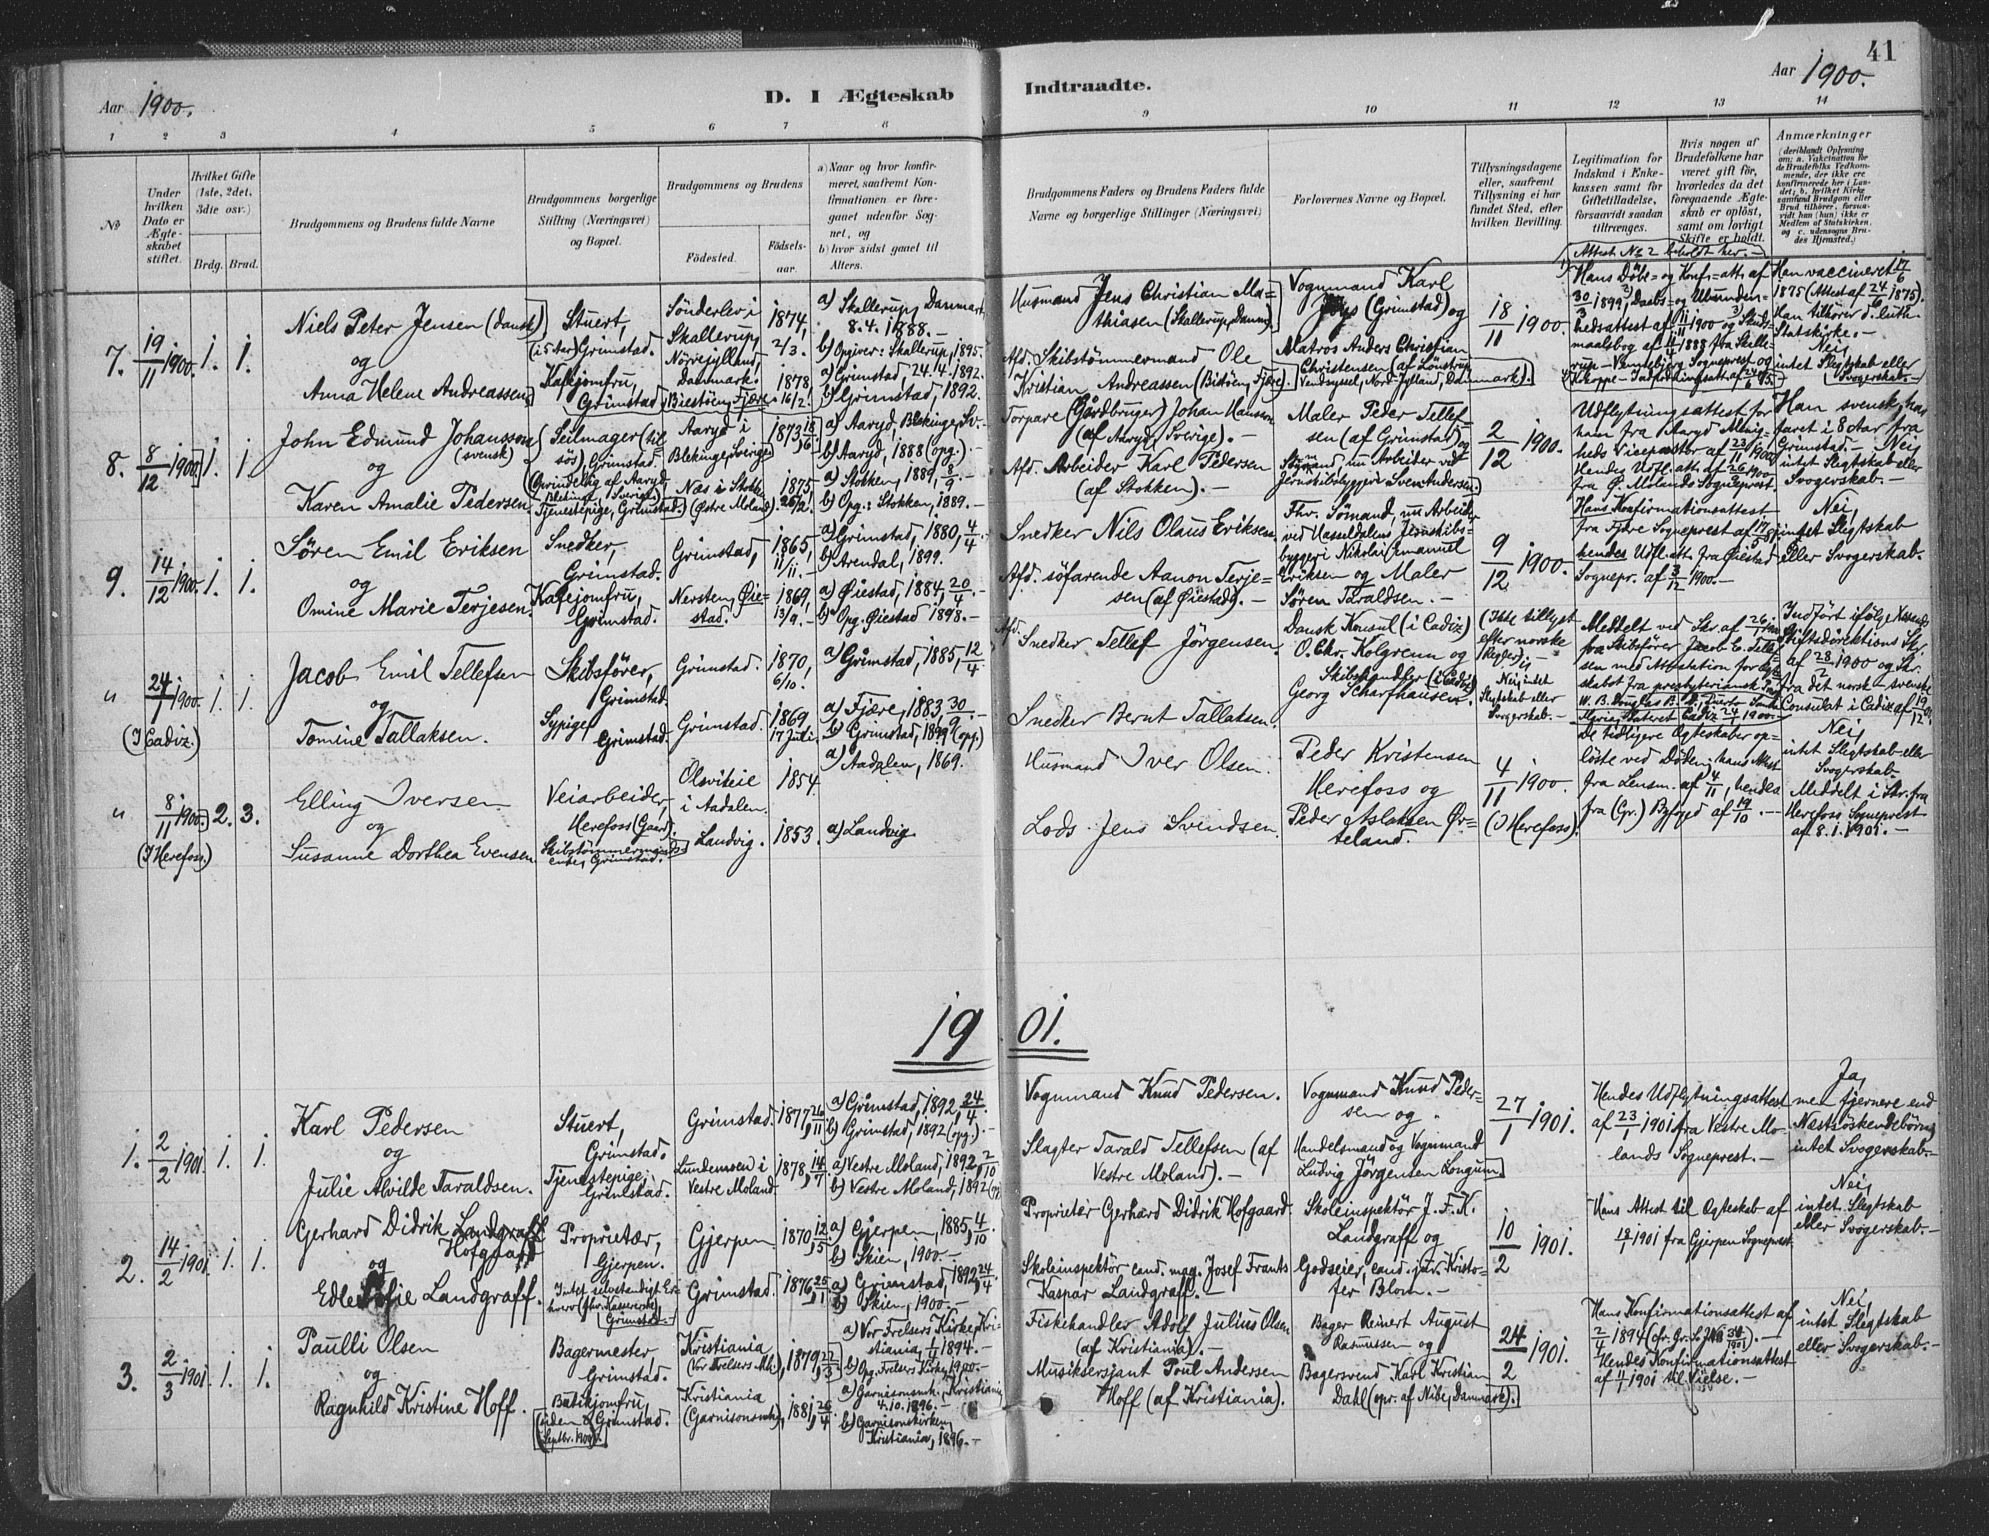 41
Aar 1900.
D. I Ægteskab
Indtraadte.
Aar 1900.
1 2 3 4 5 6 7 8 9 10 11 12 13 14
№
Under hvilken Dato er Ægteskabet stiftet.
Hvilket Gifte (1ste, 2det, 3die osv.)
Brdg. Brud.
Brudgommens og Brudens fulde Navne
Brudgommens borgerlige Stilling (Næringsvei) og Bopæl.
Brudgommens og Brudens
Fødested.
Fødselsaar.
a) Naar og hvor konfirmeret, saafremt Konfirmationen er foregaaet udenfor Sognet, og
b) hvor sidst gaaet til Alters.
Brudgommens Faders og Brudens Faders fulde Navne og borgerlige Stillinger (Næringsvei)
Forlovernes Navne og Bopæl.
Tillysningsdagene eller, saafremt Tillysning ei har fundet Sted, efter hvilken Bevilling.
Legitimation for Indskud i Enkekassen samt for Giftetilladelse, forsaavidt saadan tiltrænges.
Hvis nogen af Brudefolkene har været gift før, hvorledes da det foregaaende Ægteskab er opløst, samt om lovligt Skifte er holdt.
Anmærkninger (deriblandt Oplysning om: a. Vakcination for de Brudefolks Vedkommende, der ikke ere konfirmerede her i Landet; b. hvilket Kirkesamfund Brudgom eller Brud tilhører, forsaavidt han (hun) ikke er Medlem af Statskirken, og c. udensogns Brudes Hjemsted.)
7. 19/11 1900. 1. 1.
Niels Peter Jensen (dansk)
og
Anna Helene Andreassen
Stuert,
(i 5 Aar) Grimstad.
Kafejomfru,
Grimstad
Sönderlev i
Skallerup,
Nörrejylland,
Danmark.
Biestöen, Fjære
1874, 2/3.
1878, 16/2.
a) Skallerup, Danmark,
8. 4. 1888. —
b) Opgiver: Skallerup, 1895.
a) Grimstad, 24. 4. 1892.
b) Grimstad, 1892.
Husmand Jens Christian Mathiasen (Skallerup, Danm.)
Afd. Skibstömmermand Ole
Kristian Andreassen (Bistöen, Fjære).
Vognmand Karl
(Grimstad) og
Matros Anders Christian
Christensen (af Lönstrup
Vendsyssel, Nord-Jylland, Danmark).
18/11 1900.
Attest No 2 beholdt her. —
Hans Döbe- og Konf.-att. af
30/3 1899, Daabs- og Ubundenhedsattest af 11/11 1900 og Skudsmaalsbog af 1888 fra Skallerup - Vennebjerg Sogneprest og
Koppe-Indpodningsatt. af 24/6 75.
Han vaccineret 17/6
1875 (Attest af 24/6 1875).
Han tilhører d. luth.
Statskirke. —
Nei,
intet Slegtskab eller
Svogerskab. —
8. 8/12 1900. 1. 1.
John Edmund Johansson
(svensk)
og
Karen Amalie Pedersen
Seilmager (tilsös), Grimstad.
(Oprindelig af Aaryd,
Blekinge, i Sverige)
Tjenestepige, Grimstad.
Aaryd i
Blekinge, Sverige.
Næs i Stokken
(Østre Moland).
1873, 18/6.
1875, 26/2.
a) Aaryd, Blekinge, Sv.
b) Aaryd, 1888 (opg.). —
a) Stokken, 1889, 8/9. —
b) Opg.: Stokken, 1889. —
Torpare (Gårdbruger) Johan Hansson
(af Aaryd, Sverige). —
Afd. Arbeider Karl Pedersen
(af Stokken). —
Maler Peder Tellefsen (af Grimstad) og
Styrmand, nu Arbeider ved
Jernskibsbyggeri Sven Andersen.
2/12 1900.
Udflytningsattest for
ham fra Aaryd Menigheds Vicepastor af 23/11 1900.
Hendes Udfl. att. af 26/11 1900
fra Ø. Molands Sogneprest.
Han svensk, har
faret i 8 Aar fra
Grimstad. — Nei,
intet Slegtskab eller
Svogerskab. —
9. 14/12 1900. 1. 1.
Sören Emil Eriksen
og
Omine Marie Terjesen.
Snedker,
Grimstad.
Kafejomfru,
Grimstad.
Grimstad,
Nersten, Øiestad.
1865, 11/11. —
1869, 13/9. —
a) Grimstad, 1880, 4/4. —
b) Arendal, 1899.
a) Øiestad, 1884, 20/4. —
b) Opg. Øiestad 1898. —
Snedker Nils Olaus Eriksen.
Afd. söfarende Aanon Terjesen (af Øiestad). —
Fhv. Sömand, nu Arbeider
ved Hasseldalens Jernskibsbyggeri Nikolai Emanuel
Eriksen og Maler
Sören Taraldsen. —
9/12 1900.
Hans Konfirmationsattest
fra Fjære Sogneprest af
hendes Udfl. att. fra Øiestad
Sognepr. af 3/12 1900. —
Nei,
intet Slegtskab
eller Svogerskab.
" 24/1 1900. 1. 1.
(I Cadiz.)
Jacob Emil Tellefsen
og
Tomine Tallaksen.
Skibsförer,
Grimstad.
Sypige,
Grimstad.
Grimstad.
Grimstad.
1870, 6/10.
1869, 17 Juli.
a) Grimstad, 1885, 12/4
a) Fjære, 1883, 30/9. —
b) Grimstad, 1899 (opg.)
Afd. Snedker Tellef Jörgensen.
Snedker Bernt Tallaksen.
Dansk Konsul (i Cadiz)
O. Chr. Kolgrenn og
Skibshandler (i Cadiz)
Georg Scharfhausen.
(Ikke tillyst
efter norske
Regler). —
Nei, intet
Slegtskab eller
Svogerskab. —
Meddelt ved Skr. af 26/1 1900
fra Skibsförer Jacob E. Tellefsen med Attestation for Ægteskabet fra presbyteriansk Prest
W. B. Douglas B. D., Puerto Santa
Maria, datert Cadiz 24/1 1900. —
Indfört ifölge Krsands
Stiftsdirektions Skr.
af 28/2 1900 og Skr.
fra det norsk-svenske
Consulat i Cadiz af 19/12
" 8/11 1900. 2. 3.
(I Herefoss.)
Elling Iversen
og
Susanne Dorthea Evensen.
Veiarbeider,
Herefoss (Gaard).
Skibstömmermandsenke, Grimstad.
Ölsviteie
i Aadalen.
Landvig.
1854.
1853.
a) Aadalen, 1869.
a) Landvig.
Husmand Iver Olsen.
Lods Jens Svendsen.
Peder Kristensen
Herefoss og
Peder Aslaksen Ørteland.
4/11 1900.
(I Herefoss).
De tidligere Ægteskaber oplöste ved Döden, hans Attest
fra Lensm. af 4/11, hendes
fra (Gr.) Byfoged af 19/10. —
Nei,
intet Slegtskab eller
Svogerskab.
Meddelt i Skr. fra
Herefoss Sogneprest
af 8. 1. 1901. —
1901.
1. 2/2 1901. 1. 1.
Karl Pedersen
og
Julie Alvilde Taraldsen.
Stuert,
Grimstad.
Tjenestepige,
Grimstad.
Grimstad.
Lundemoen i
Vestre Moland.
1877, 26/11
1878, 14/7
a) Grimstad, 1892, 24/4.
b) Grimstad, 1892 (opg.) —
a) Vestre Moland, 1892, 2/10
b) Vestre Moland, 1892
Vognmand Knud Pedersen.
Slagter Tarald Tellefsen (af
Vestre Moland). —
Vognmand Knud Pedersen og
Handelsmand og Vognmand
Ludvig Jörgensen Longum
27/1 1901.
Hendes Udflytningsattest
af 23/1 1901 fra Vestre Molands Sogneprest. —
Ja,
men fjernere end
Næstsöskendebörn,
intet Svogerskab. —
2. 14/2 1901. 1. 1.
Gerhard Didrik Landgraff
Hofgaard
og
Edle Sofie Landgraff.
Proprietær,
Gjerpen.
Intet selvstændigt Erhverv
Grimstad.
Gjerpen
Grimstad.
1870 12/5
1876 25/1
a) Gjerpen, 1885 4/10
b) Skien, 1900. —
a) Grimstad, 1892, 24/4.
b) Skien, 1900. —
Proprietær Gerhard Didrik Hofgaard.
Skoleinspektör cand. mag. Josef Frants
Kaspar Landgraff. —
Skoleinspektör J. F. K.
Landgraff og
Godseier, cand. jur. Kristofer Blom. —
10/2 1901.
Hans Attest til Ægteskab af
1901 fra Gjerpen Sogneprest.
Nei,
intet Slegtskab
eller Svogerskab. —
3. 2/3 1901 1. 1.
Paulli Olsen
og
Ragnhild Kristine Hoff.
Bagermester,
Grimstad.
Butikjomfru,
(siden Septbr. 1900). Grimstad.
Kristiania
(Vor Frelsers Mh.),
Kristiania
(Garnisonsmh),
1879, 22/3
1881, 26/4
a) Vor Frelsers Kirke, Kristiania, 1894. —
b) Opg. Frelsers Kirke, 1900. —
a) Garnisonsmh., Kristiania
4. 10. 1896. —
b) Garnisonskirken,
Kristiania, 1896. —
Fiskehandler Adolf Julius Olsen
(af Kristiania). —
Musiksersjant Poul Andersen
Hoff (af Kristiania).
Bager Reinert August
Rasmussen og
Bagersvend Karl Kristian
Dahl (opr. af Nibe, Danmark).
24/2 1901.
Hans Konfirmationsattest af
2/4 1894
Hendes Konfirmationsattest
af 1901 til Vielse. —
Nei,
intet Slegtskab
eller Svogerskab. —